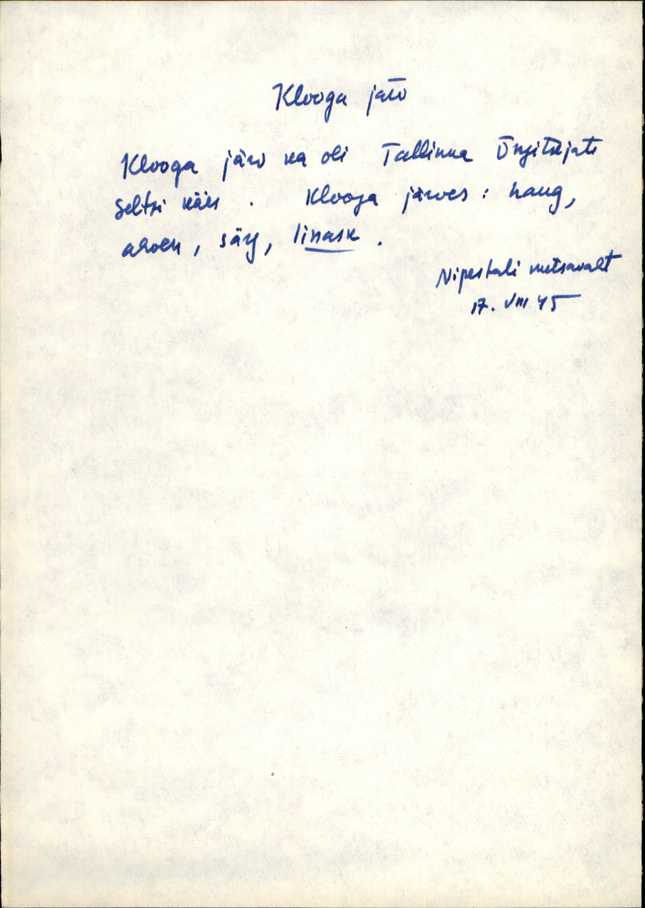 Klooga järv
Klooga järv ka oli Tallinna Õngitsejate
Seltsi käes. Klooga järves: haug,
ahven, särg, linask.
metsavaht
17. VIII 45